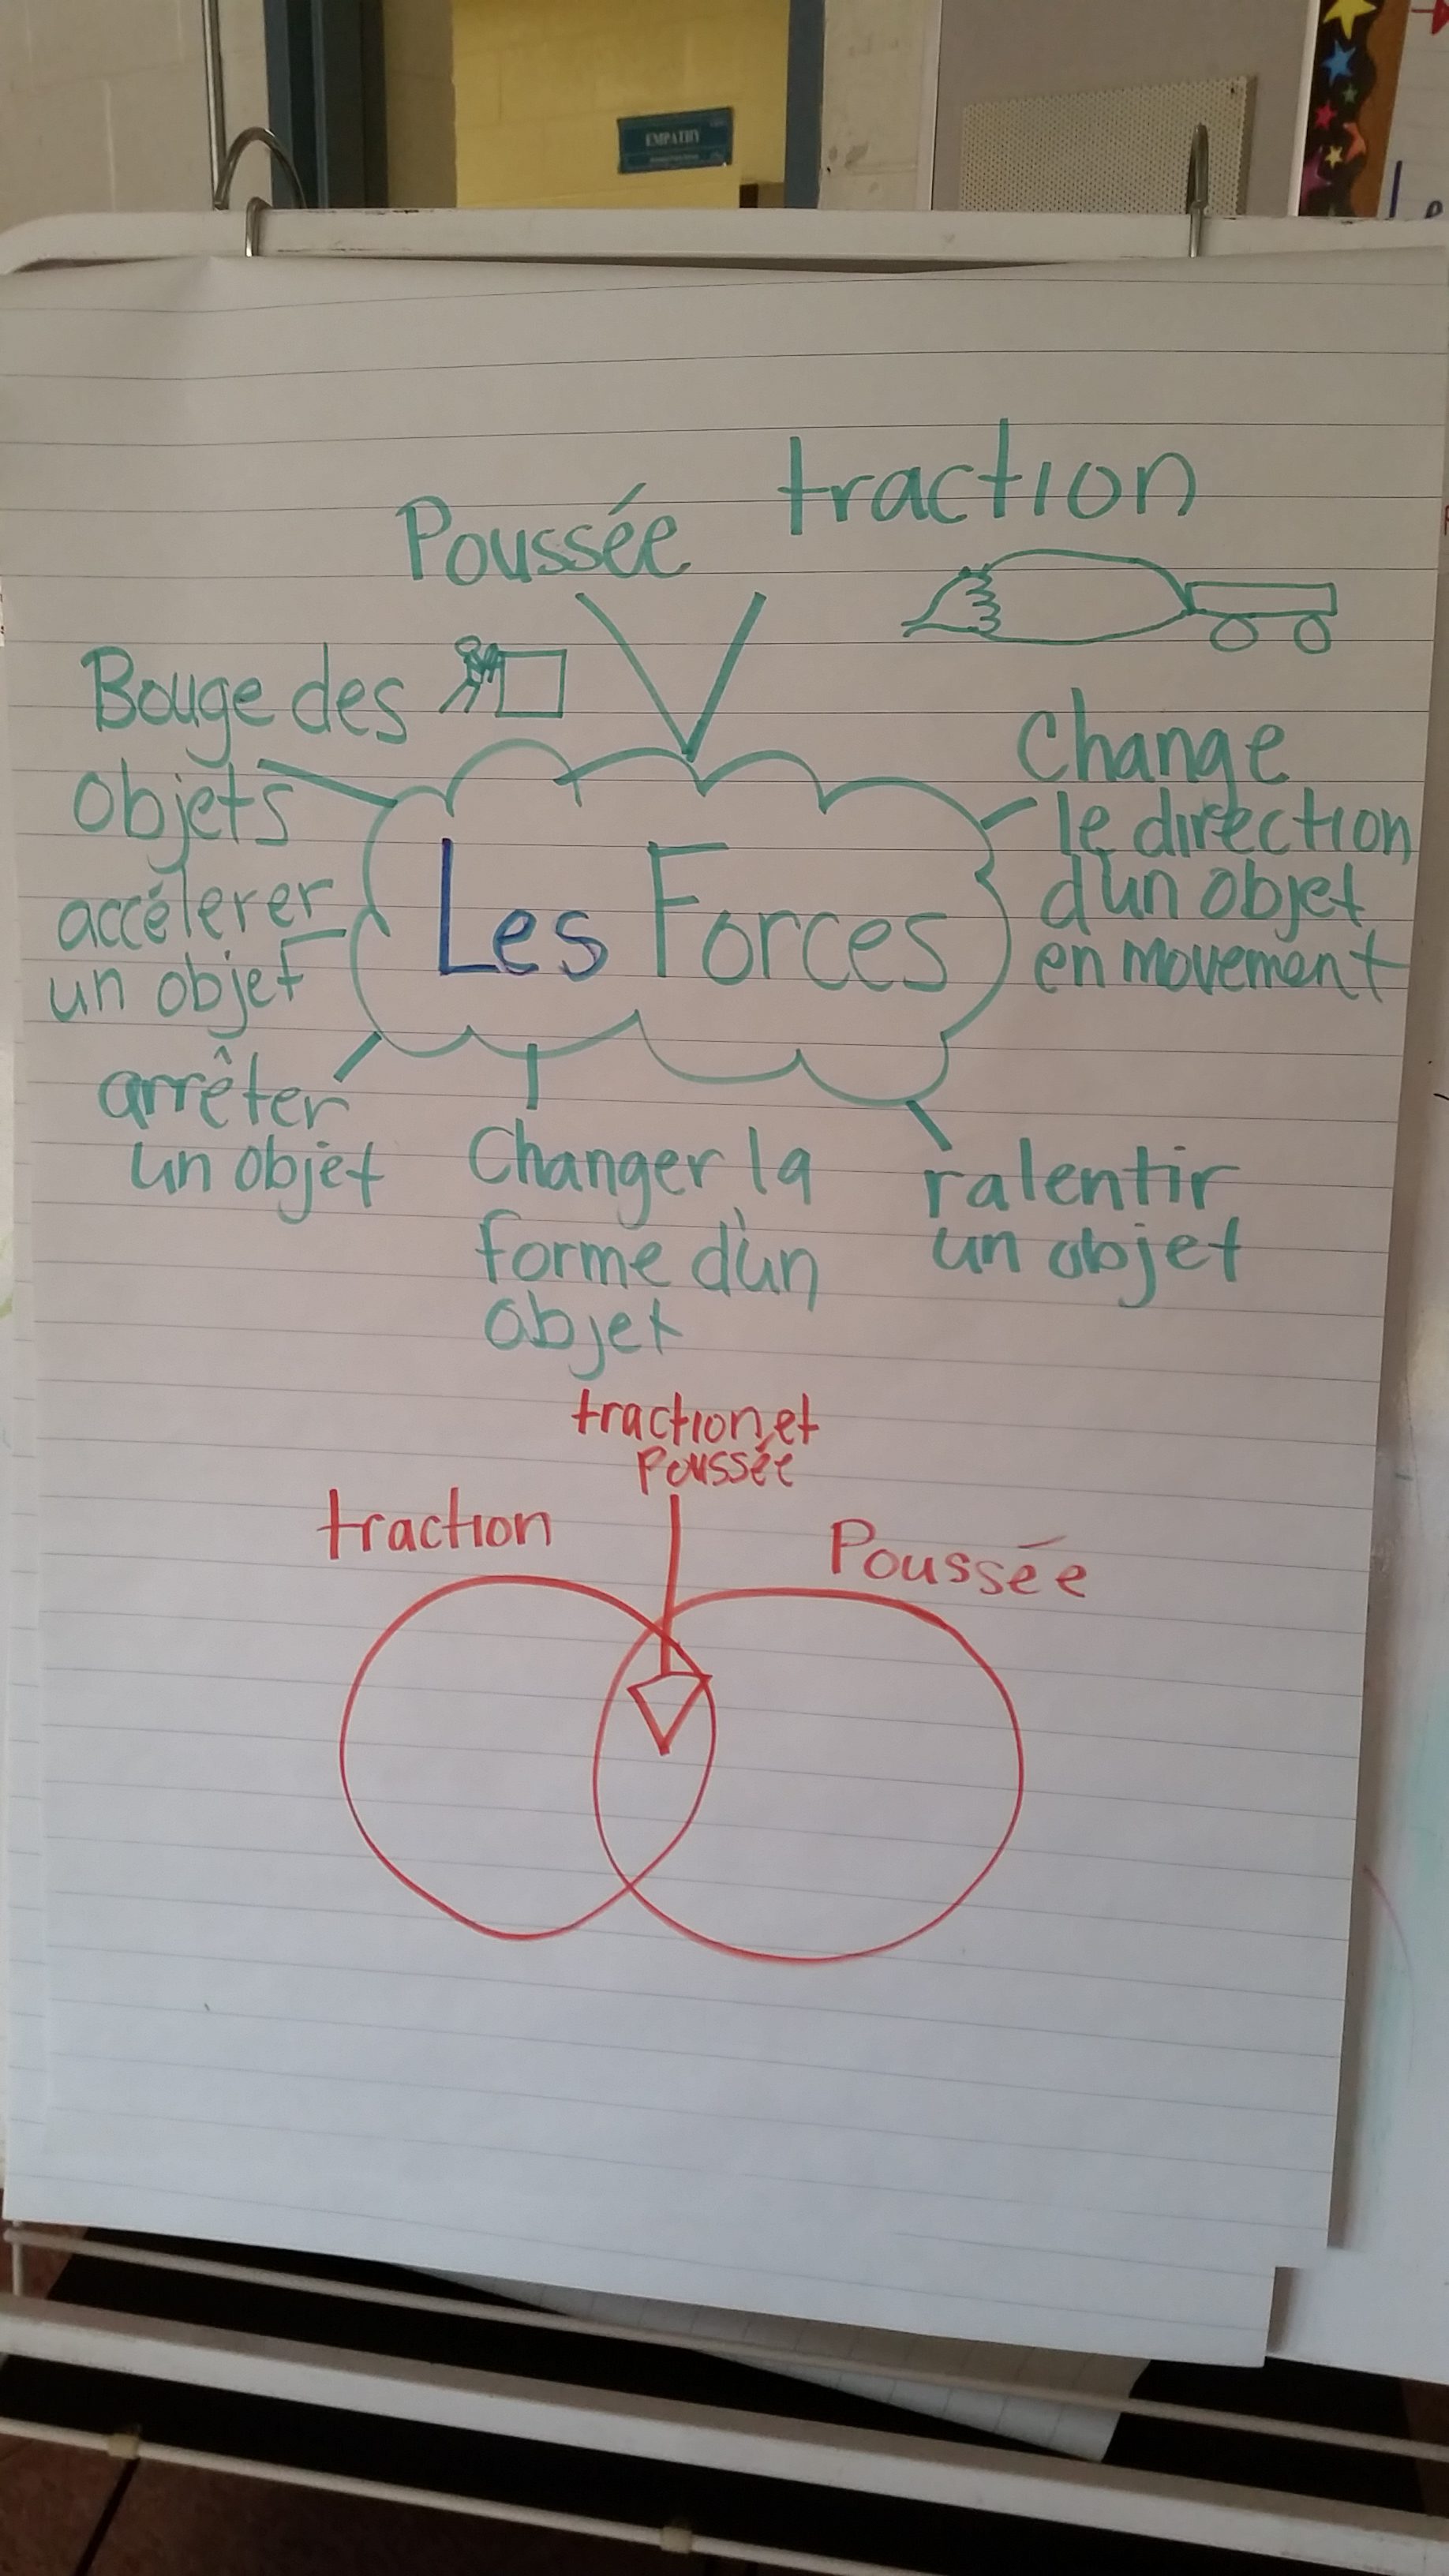 EMPATHY
Le
Poussée
traction
Bouge des
objets
Change
le direction
d'un objet
en movement
Les Forces
accélerer
un objet
arrêter
un objet
Changer la
forme d'un
objet
ralentir
un objet
traction et
poussée
traction
Poussée